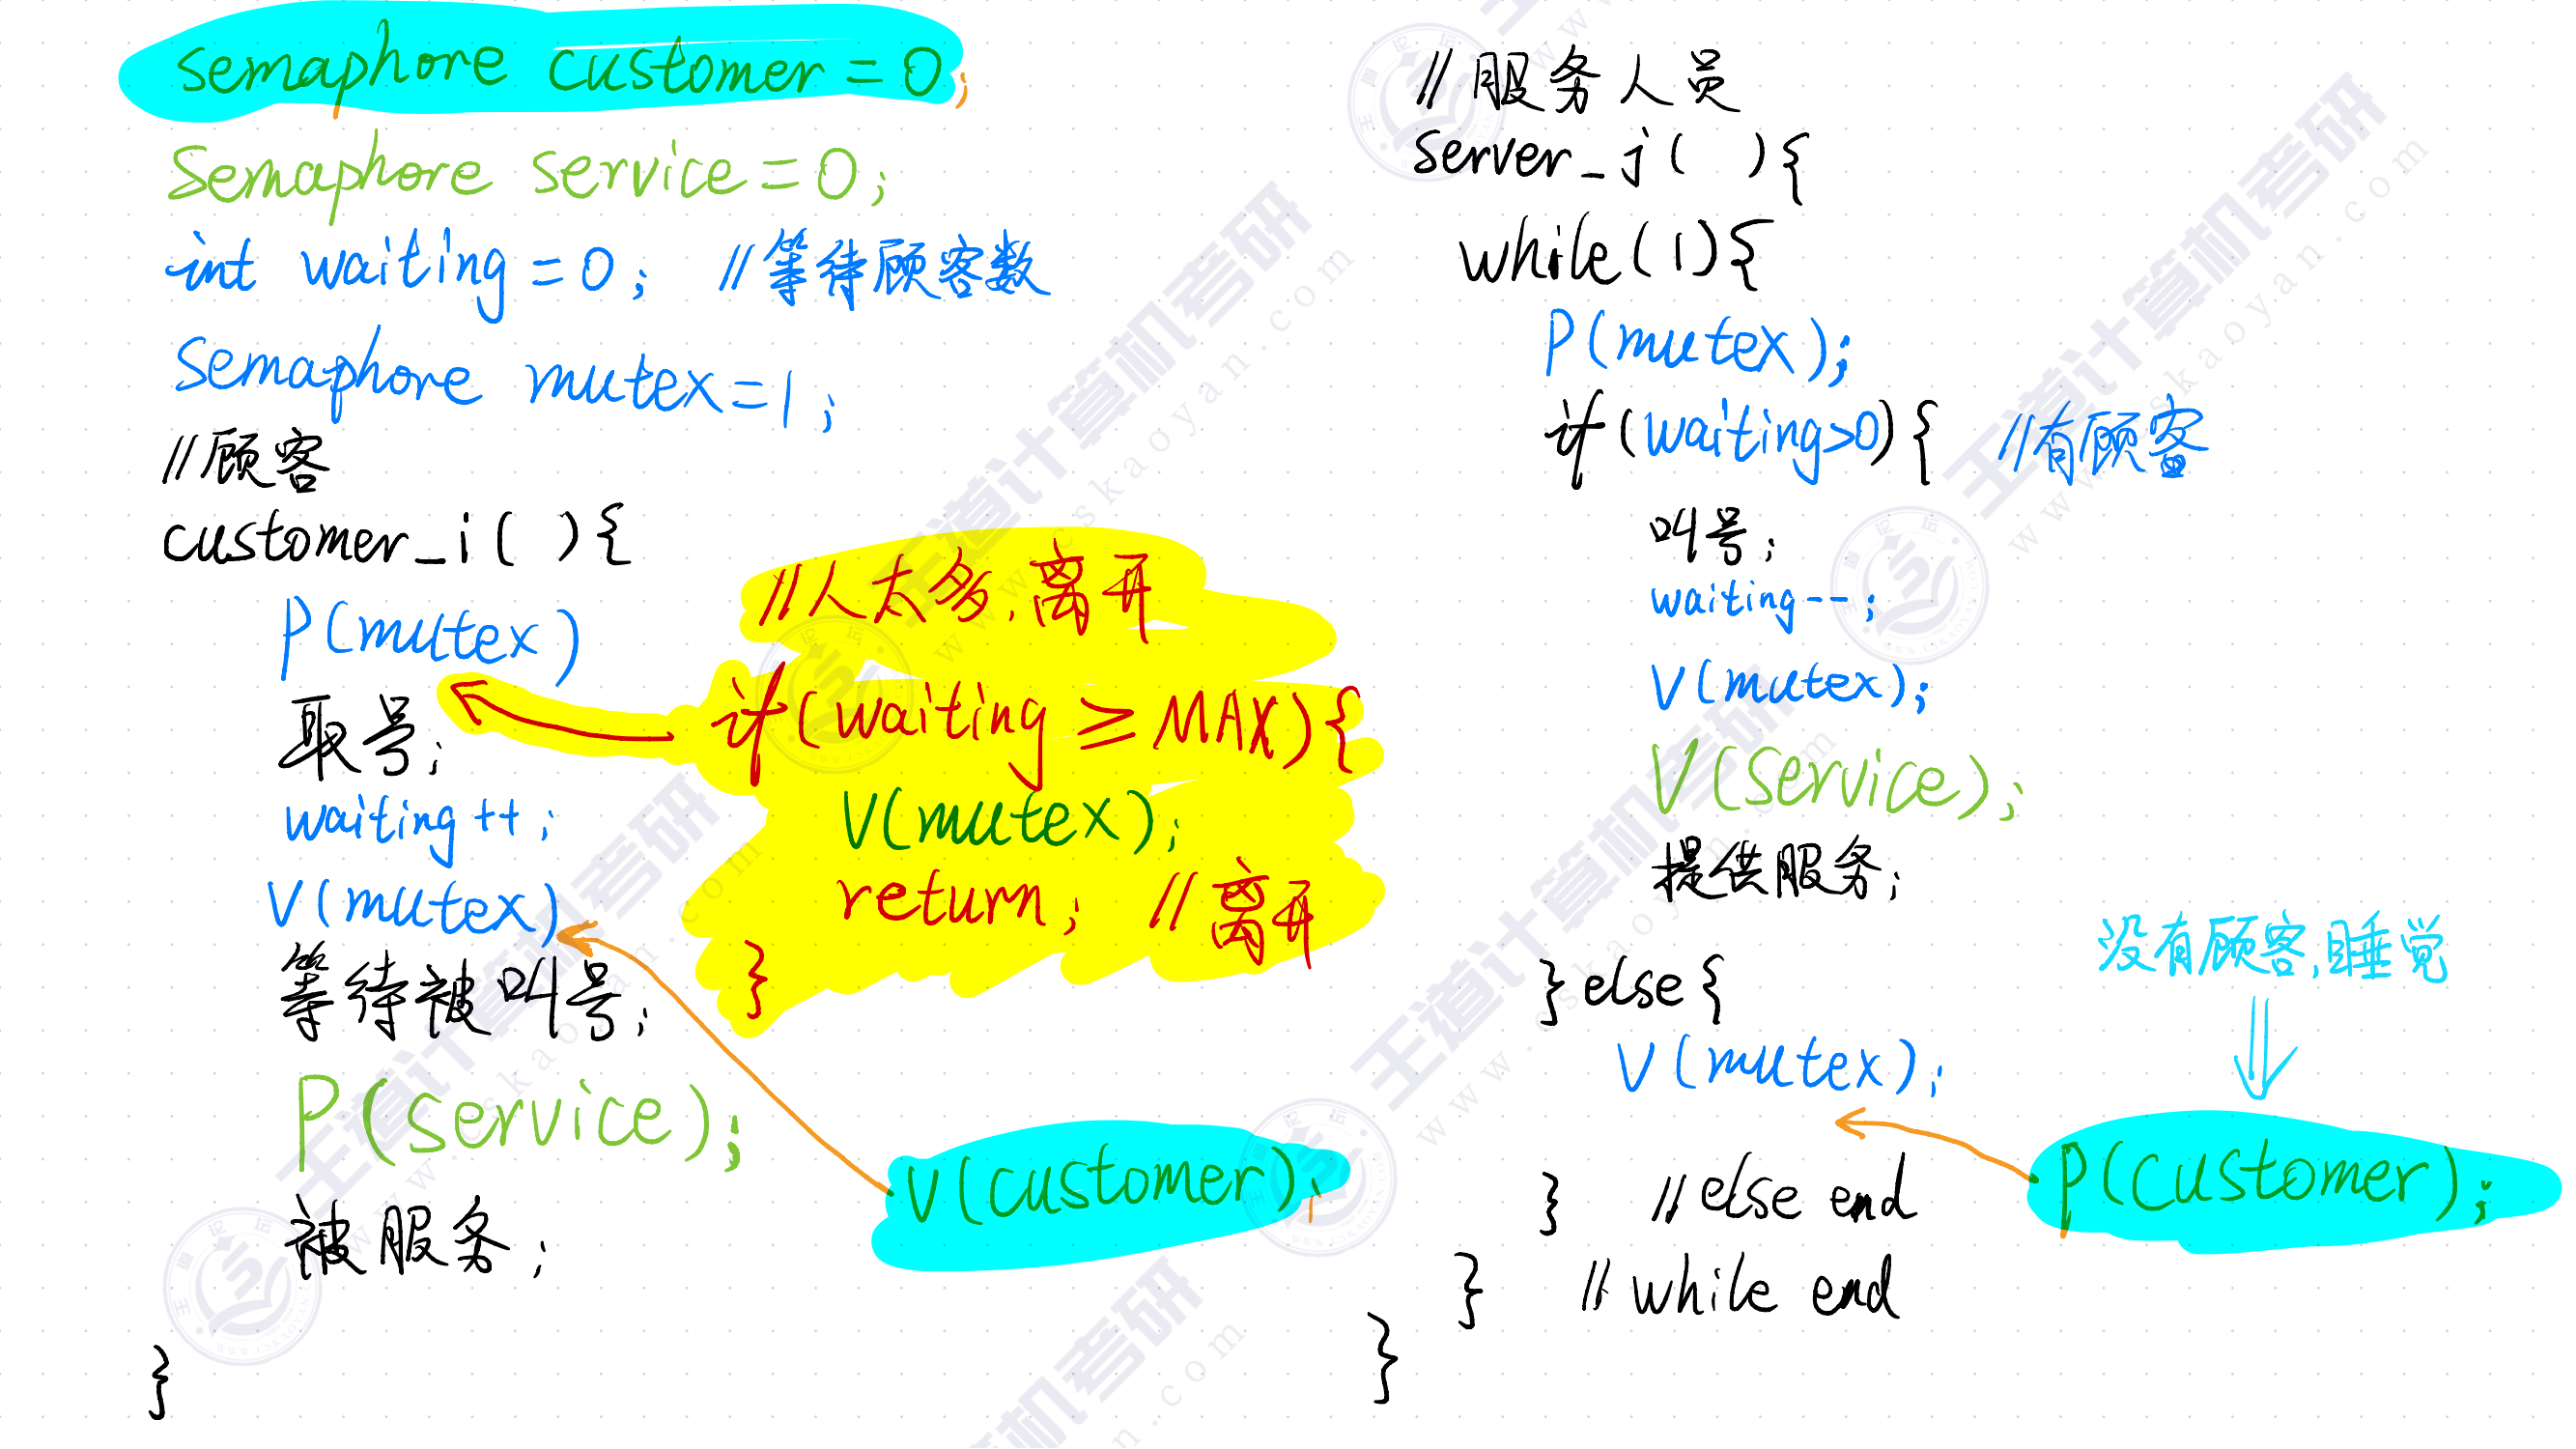 semaphore customer = 0;
Semaphore service = 0;
int waiting = 0; //等待顾客数
Semaphore mutex = 1;
//顾客
customer_i( ){
P(mutex)
取号;
waiting++;
V(mutex)
等待被叫号;
P(service);
被服务;
}
//人太多,离开
if(waiting ≥ MAX){
V(mutex);
return; //离开
}
V(customer);
//服务人员
Server_j( ){
while(1){
P(mutex);
if(waiting>0){ //有顾客
叫号;
waiting--;
V(mutex);
V(service);
提供服务;
}else{
V(mutex);
没有顾客,睡觉
P(customer);
} //else end
} //while end
}
王道计算机考研
www.cskaoyan.com